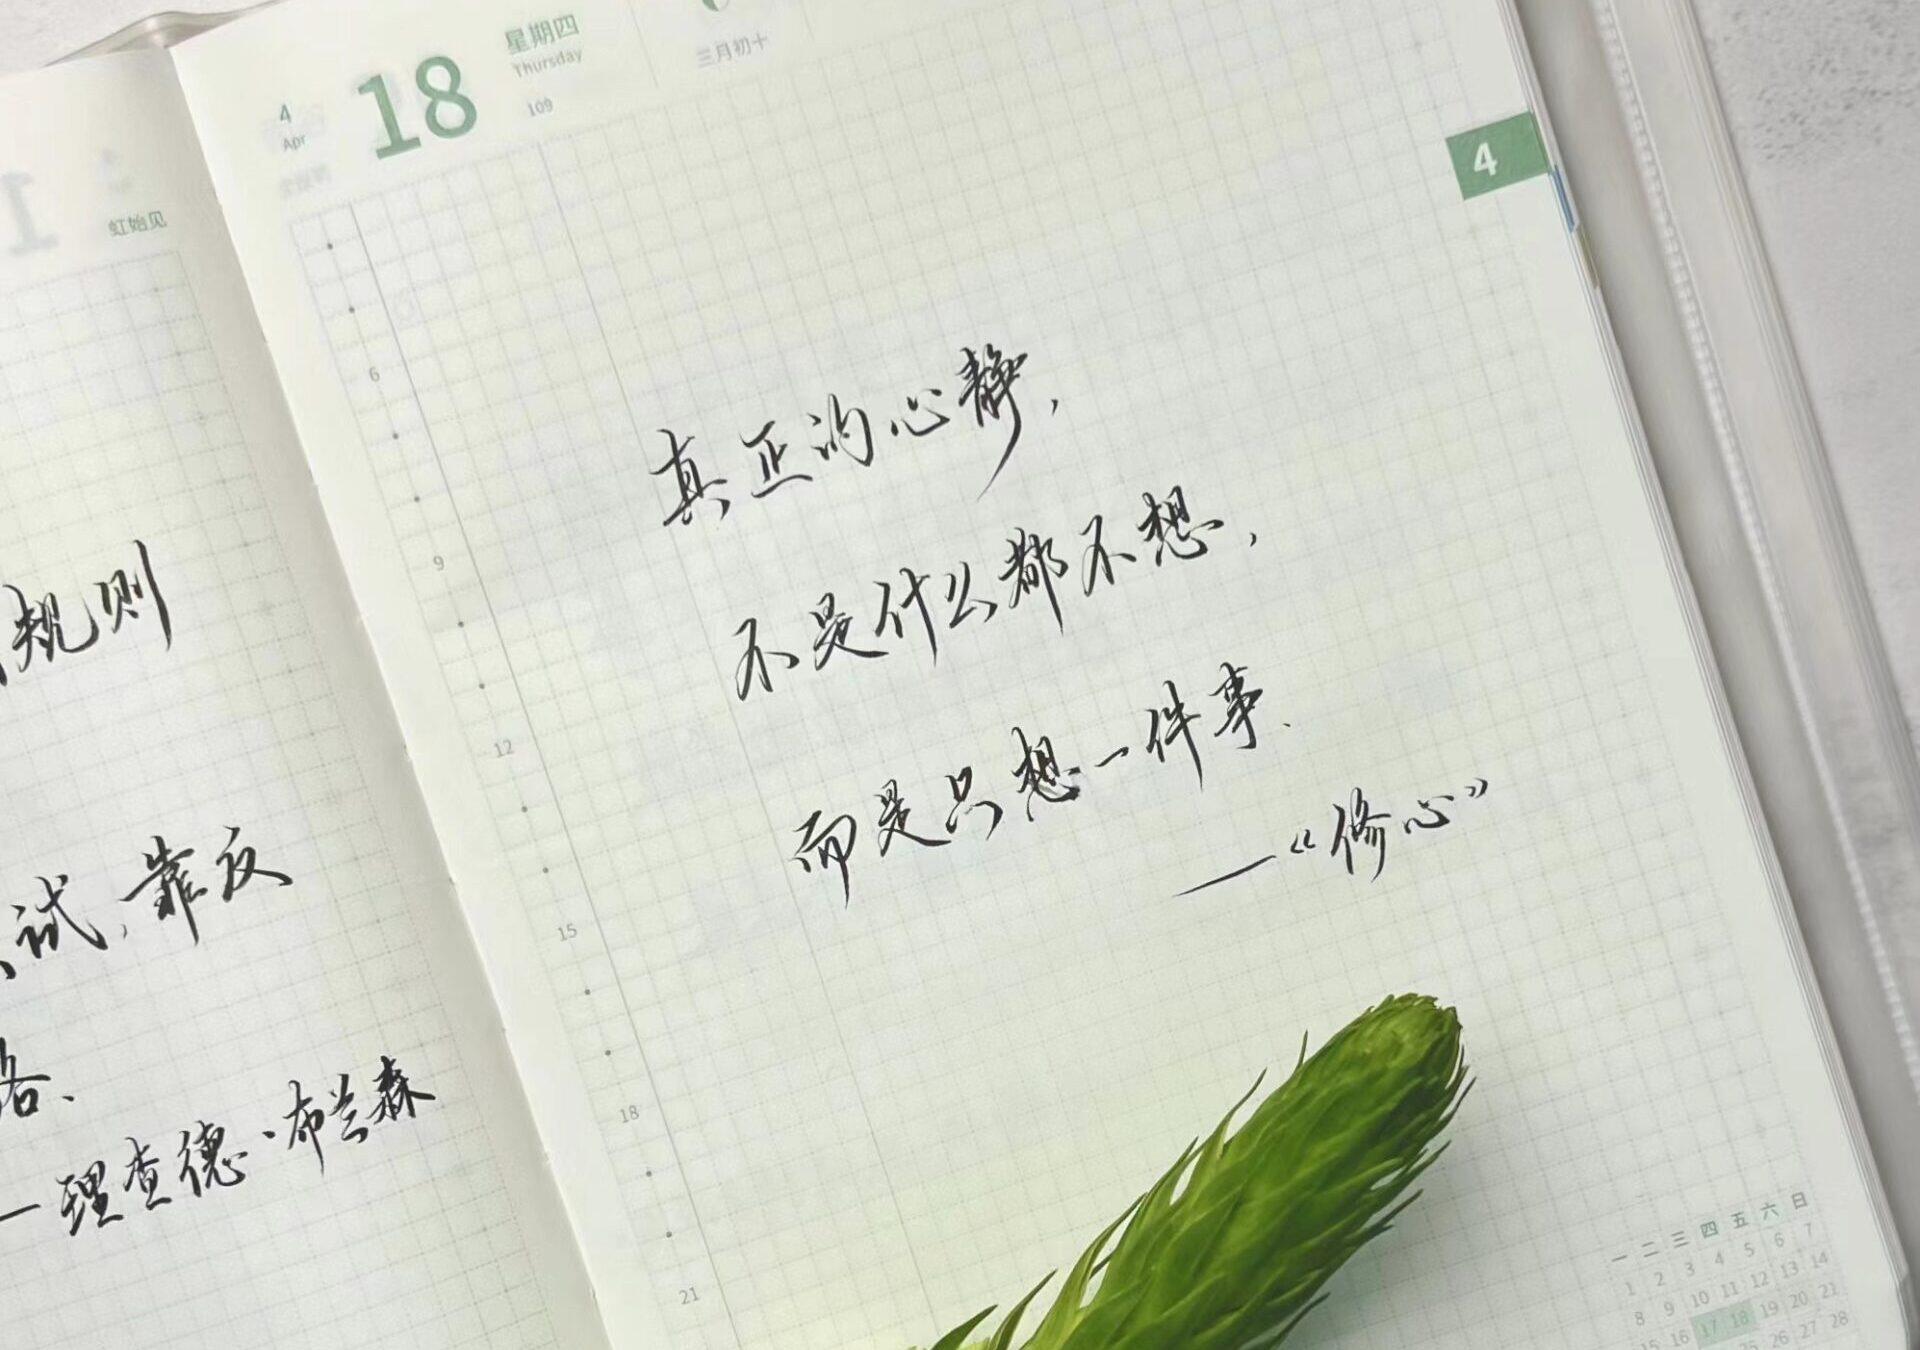 虹始见
规则
试,靠反
洛.
—理查德·布兰森
4
Apr
18
星期四
Thursday
109
三月初十
4
6
9
12
15
18
21
真正的心静,
不是什么都不想,
而是只想一件事.
—《修心》
一 二 三 四 五 六 日
1 2 3 4 5 6 7
8 9 10 11 12 13 14
15 16 17 18 19 20 21
25 26 27 28